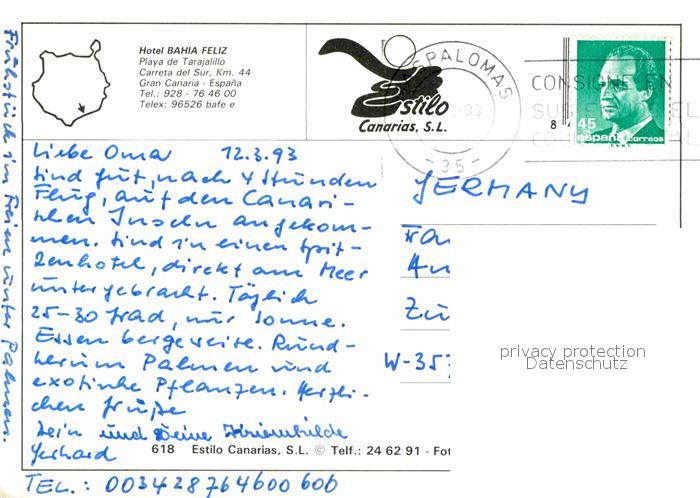 Hotel BAHIA FELIZ
Playa de Tarajalillo
Carreta del Sur, Km. 44
Gran Canaria - España
Tel.: 928 - 76 46 00
Telex: 96526 bafe e
Estilo
Canarias, S.L.
SPALOMAS
- 35 -
CONSIGNE EN
8
45
España correos
Liebe Oma 12.3.93
Sind gut, nach 4 Stunden
Flug, auf den Canari-
schen Inseln angekom-
men. Sind in einen Spit-
zenhotel, direkt am Meer
untergebracht. Täglich
25-30 Grad, nur Sonne.
Essen bergeweise. Rund-
herum Palmen und
exotische Pflanzen. Herzli-
chen Grüße
Dein und Deine Kriemhilde
Gerhard
Frühstück im Freien unter Palmen.
TEL.: 003428764600 600
GERMANY
Zu
W-357
privacy protection
Datenschutz
618 Estilo Canarias, S.L. © Telf.: 24 62 91 - Fot